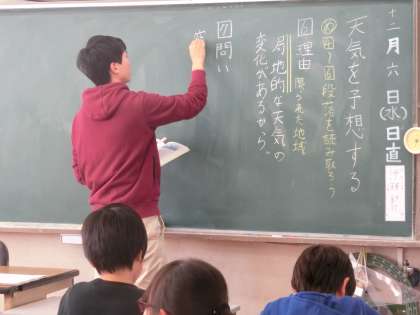 十二月六日(水)日直
天気を予想する
め 田〜 固段落を読み取ろう
6 理由 限られた地域
局地的な天気の
変化があるから。
7 問い